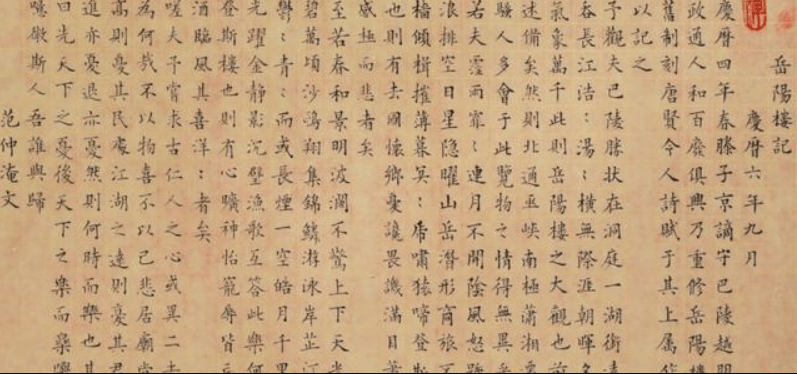 岳陽樓記
慶曆六年九月
慶曆四年春滕子京謫守巴陵越明
政通人和百廢俱興乃重修岳陽樓
舊制刻唐賢今人詩賦于其上属作
以記之
予觀夫巴陵勝狀在洞庭一湖銜遠
吞長江浩〻湯〻橫無際涯朝暉夕
氣象萬千此則岳陽樓之大觀也前
述備矣然則北通巫峽南極瀟湘
騷人多會于此覽物之情得無異乎
若夫霪雨霏〻連月不開陰風怒號
浪排空日星隱曜山岳潛形商旅不
檣傾楫摧薄暮冥〻虎嘯猿啼登斯
也則有去國懷鄉憂讒畏譏滿目蕭
感極而悲者矣
至若春和景明波瀾不驚上下天光
碧萬頃沙鷗翔集錦鱗游泳岸芷汀
鬱〻青〻而或長煙一空皓月千里
光躍金靜影沉璧漁歌互答此樂何
登斯樓也則有心曠神怡寵辱皆
酒臨風其喜洋〻者矣
嗟夫予嘗求古仁人之心或異二
為何哉不以物喜不以己悲居廟堂
高則憂其民處江湖之遠則憂其君
進亦憂退亦憂然則何時而樂也其
曰先天下之憂後天下之樂而樂
噫微斯人吾誰與歸
范仲淹文